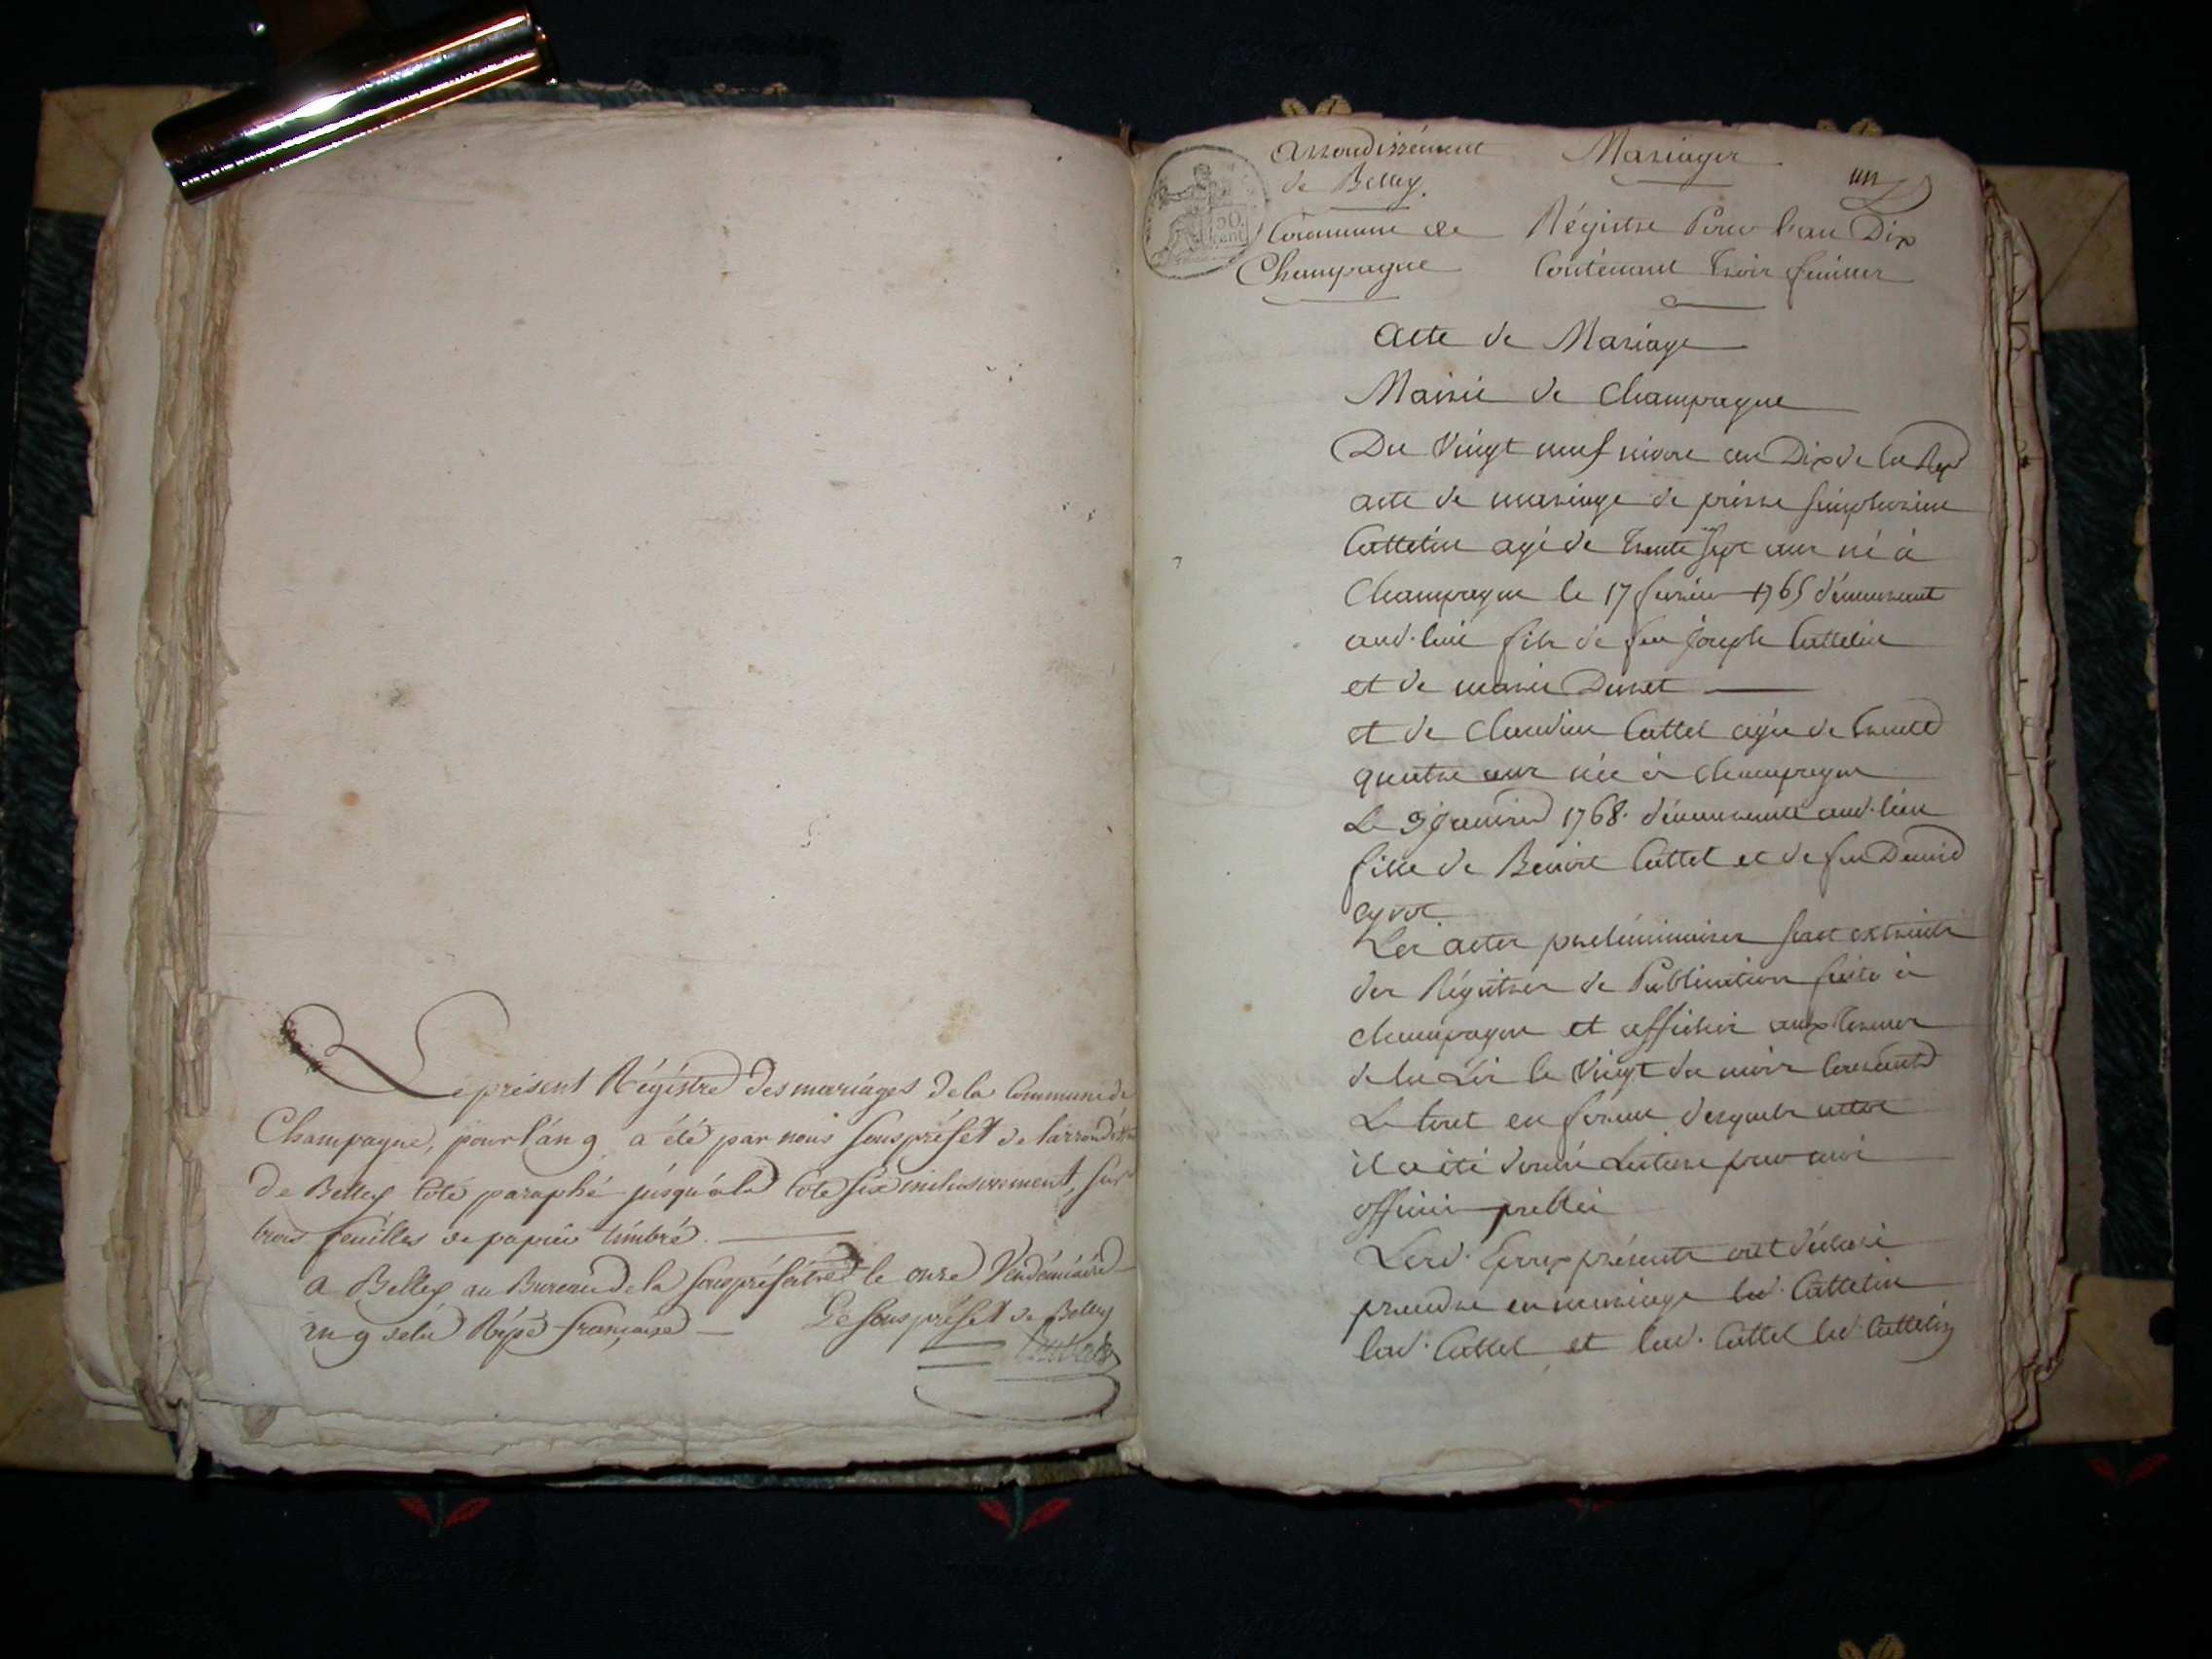 Le présent Régistre des mariages de la Commune de
Champagne, pour l'an 9 a été par nous sous préfet de l'arrondisst
de Belley coté paraphé jusqu'à la cote six inclusivement, sur
trois feuilles de papier timbré.
A Belley au Bureau de la sous préfecture le onze Vendémiaire
an 9 de la Rép. française
Le sous préfet de Belley
arrondissement
de Belley.
Commune de
Champagne
50
cent
Mariages
un
Régistre Pour l'an Dix
Contenant trois feuilles
Acte de Mariage
Mairie de Champagne
Du Vingt neuf nivose an Dix de la Rep
acte de mariage de pierre simphorien
Cattelin agé de trente sept ans né à
Champagne le 17 fevrier 1765 démeurant
aud. lieu fils de feu joseph Cattelin
et de marie
et de Claudine Cattel agée de trente
quatre ans née à Champagne
Le 9 janvier 1768. démeurante aud. lieu
fille de Benoit Cattel et de feu
Les actes préliminaires sont extraits
des Régistres de Publication faite à
champagne et affichés aux termes
de la Loi le Vingt du mois
Le tout en forme desquels actes
il a été donné Lecture par moi
officier public
Lesd. Epoux présents ont déclaré
prendre en mariage led. Cattelin
lad. Cattel et lad. Cattel led. Cattelin